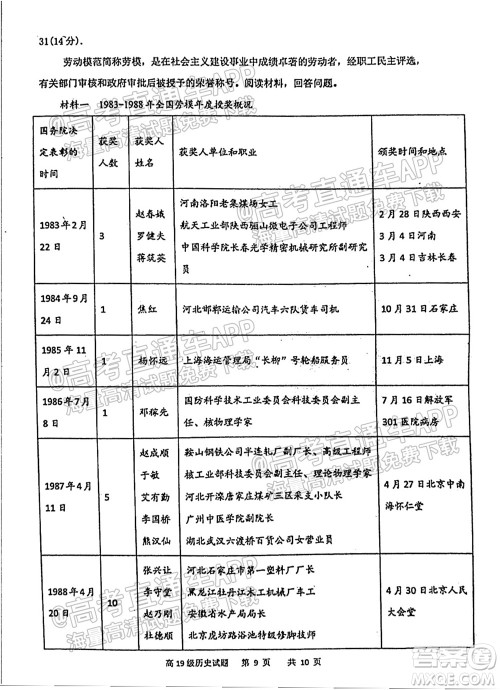 31(14分).
劳动模范简称劳模，是在社会主义建设事业中成绩卓著的劳动者，经职工民主评选，
有关部门审核和政府审批后被授予的荣誉称号。阅读材料，回答问题。
材料一 1983-1988年全国劳模年度授奖概况
国务院决定表彰的时间 获奖人数 获奖人姓名 获奖人单位和职业 颁奖时间和地点
1983年2月22日 3
赵春娥 河南洛阳老集煤场女工 2月28日陕西西安
罗健夫 航天工业部陕西骊山微电子公司工程师 3月4日河南
蒋筑英 中国科学院长春光学精密机械研究所副研究员 3月4日吉林长春
1984年9月24日 1 焦红 河北邯郸运输公司汽车六队货车司机 10月31日石家庄
1985年11月2日 1 杨怀远 上海海运管理局“长柳”号轮船服务员 11月5日上海
1986年7月8日 1 邓稼先 国防科学技术工业委员会科技委员会副主任、核物理学家 7月16日解放军301医院病房
1987年4月11日 5 4月27日北京中南海怀仁堂
赵成顺 鞍山钢铁公司半连轧厂副厂长、高级工程师
于敏 核工业部科技委员会副主任、理论物理学家
艾有勤 河北开滦唐家庄煤矿三区采支小队长
李国桥 广州中医学院副院长
熊汉仙 湖北武汉六渡桥百货公司女营业员
1988年4月20日 10 4月30日北京人民大会堂
张兴让 河北石家庄市第一塑料厂厂长
李守堂 黑龙江牡丹江木工机械厂车工
赵乃刚 安徽省水产局局长
杜德顺 北京虎坊路浴池特级修脚技师
高19级历史试题 第9页 共10页
@高考直通车APP
海量高清试题免费下载
答案圈